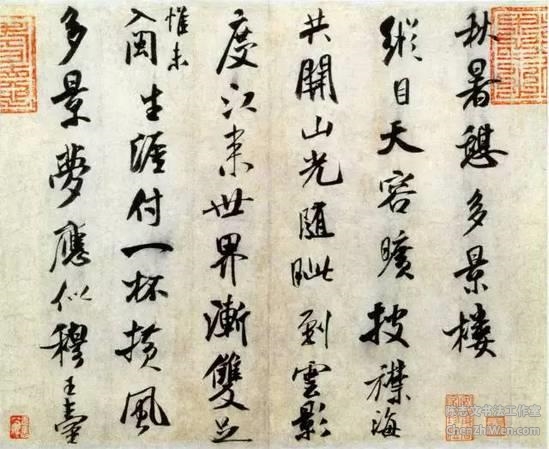 秋暑憩多景樓
縱目天容曠披襟海
共開山光隨眦到雲影
度江来世界漸雙足
惟未
入閩生涯付一杯横風
多景夢應似穆王臺
陈志文书法工作室
ChenZhiWen.com